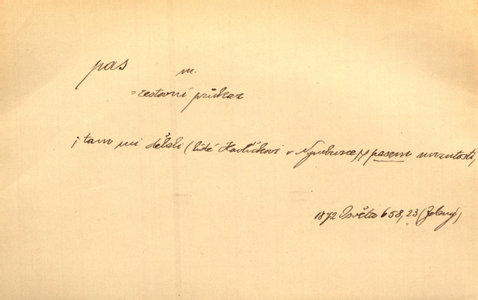 pas m.
= cestovní průkaz
i tam mi dělali (lidé Havlíčkovi v Nymburce) s pasem nesnadnosti,
1872 Osvěta 658, 23 (Zelený)